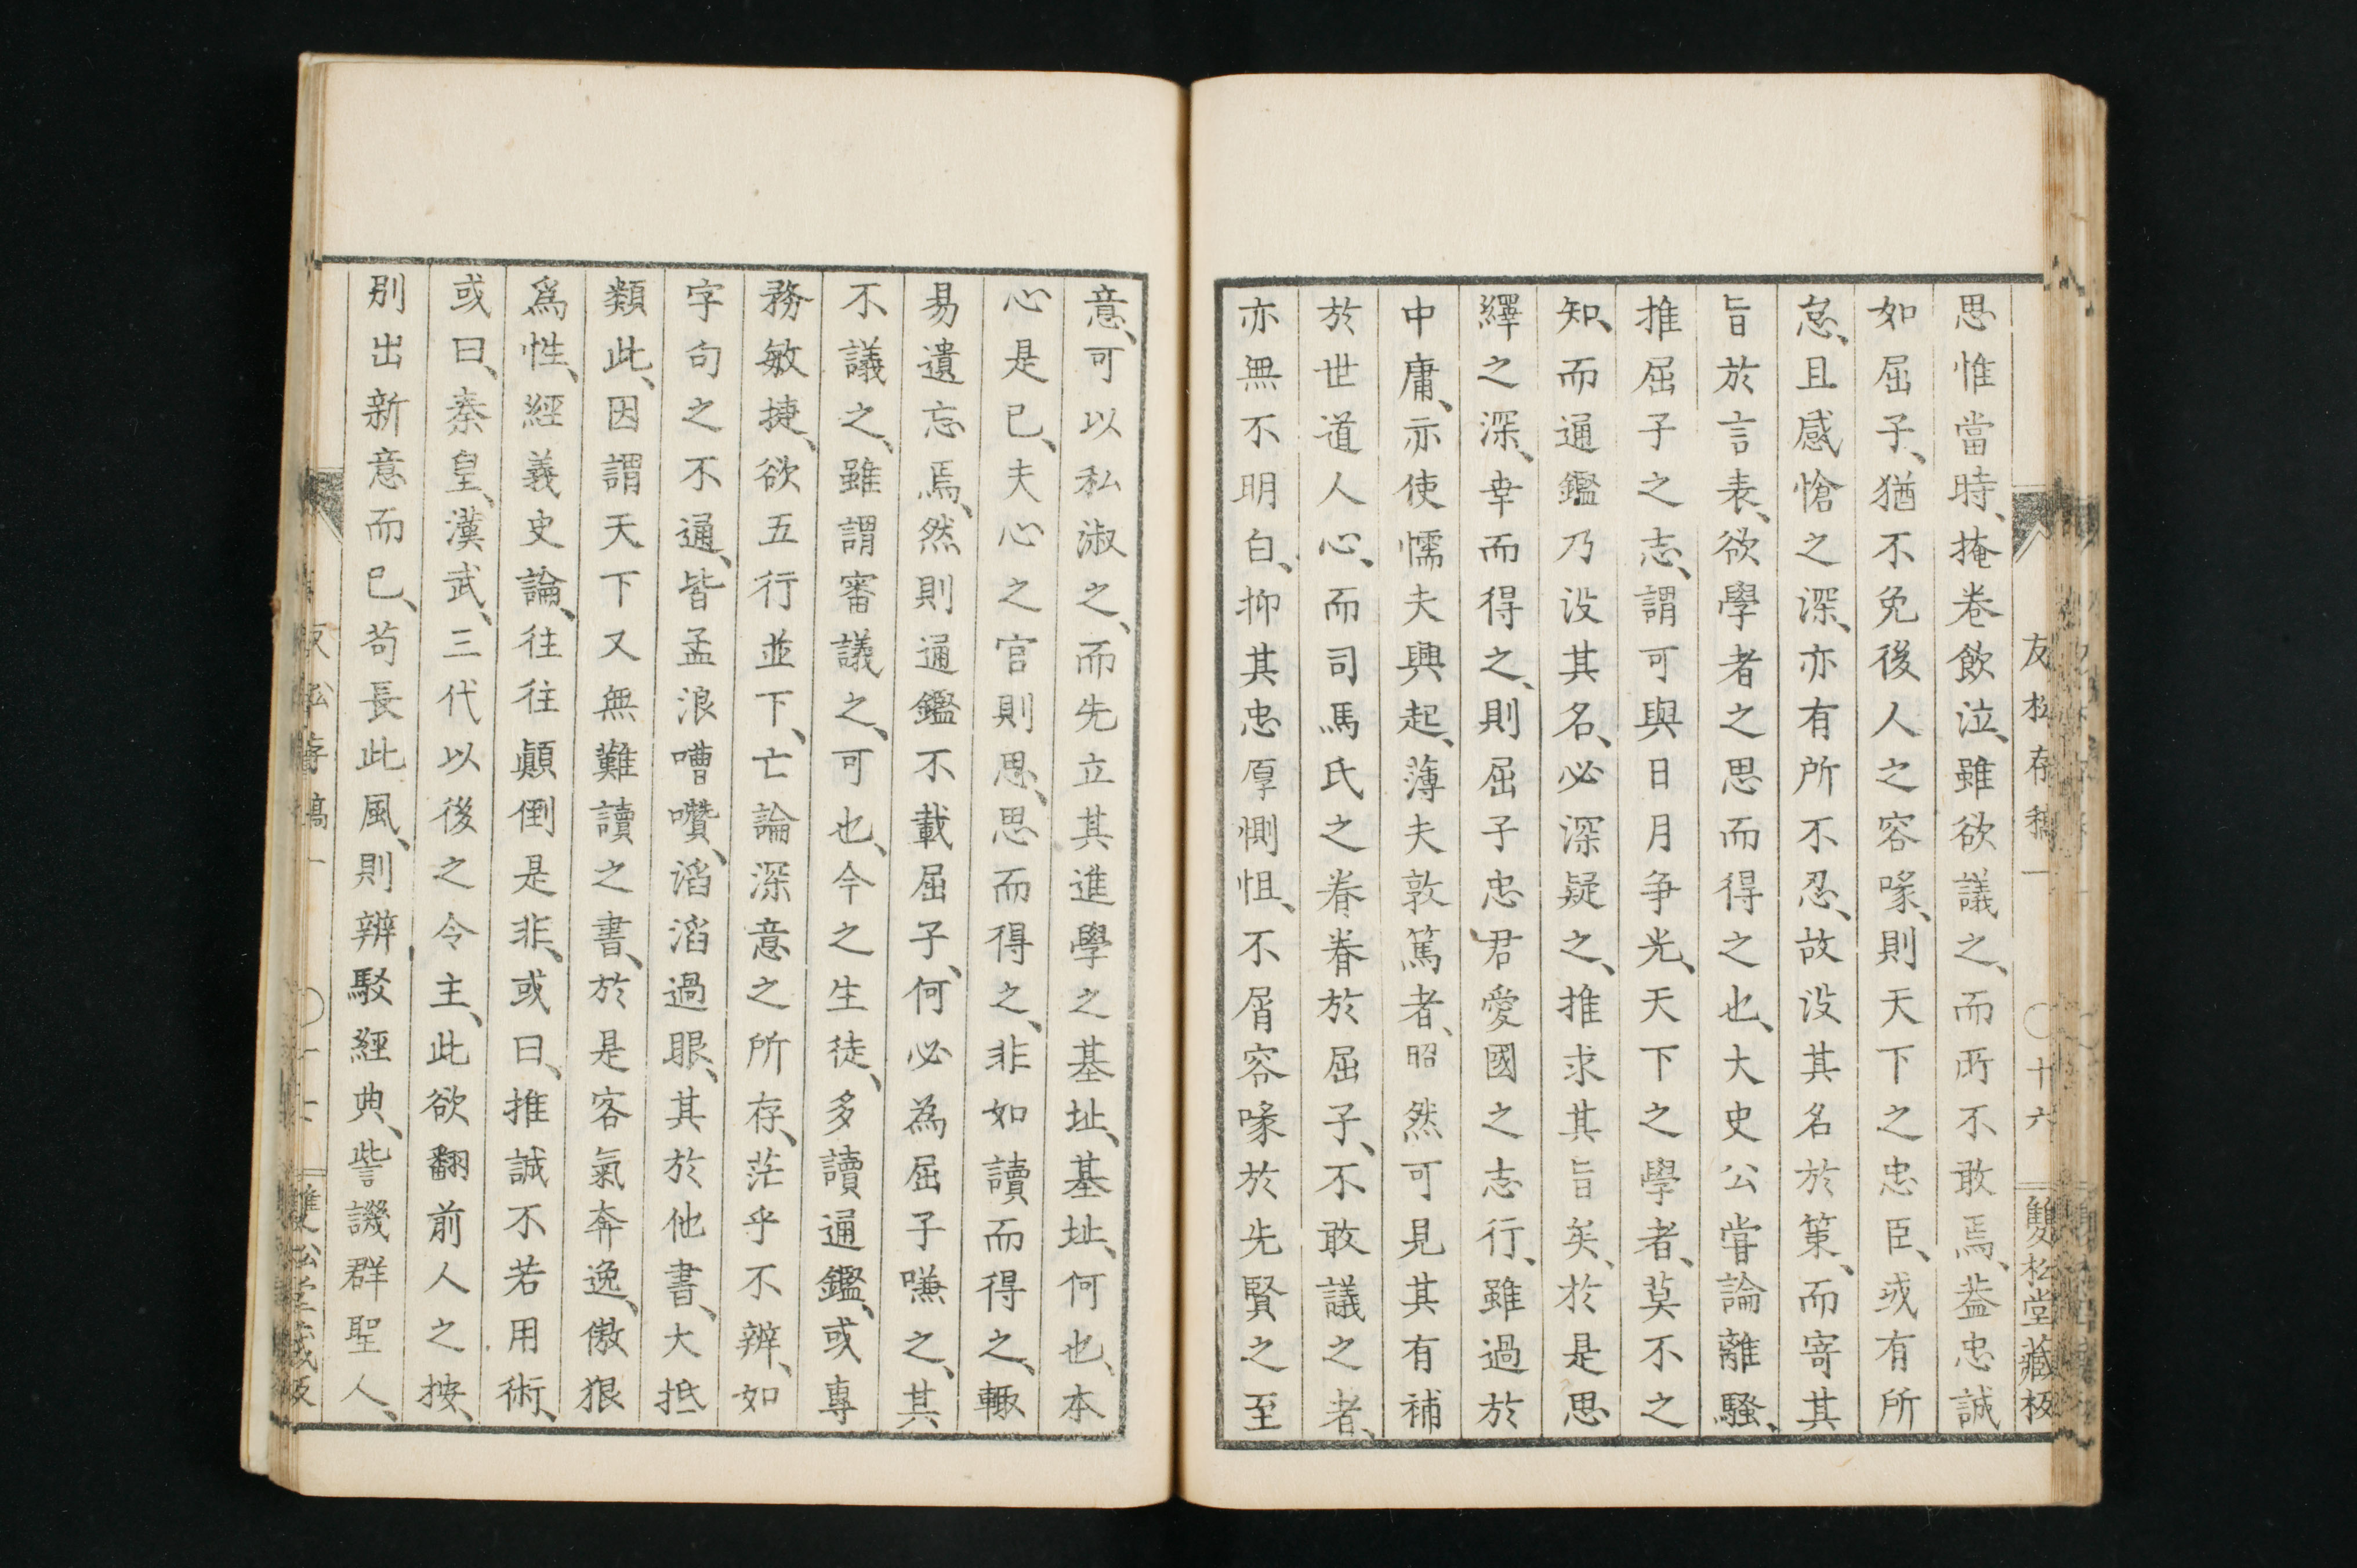 友松存稿一 〇十六 雙松堂藏板
思惟當時、掩卷飲泣、雖欲議之、而所不敢焉、葢忠誠
如屈子、猶不免後人之容喙、則天下之忠臣、或有所
怠、且感愴之深、亦有所不忍、故没其名於策、而寄其
旨於言表、欲學者之思而得之也、大史公嘗論離騷、
推屈子之志、謂可與日月爭光、天下之學者、莫不之
知、而通鑑乃没其名、必深疑之、推求其旨矣、於是思
繹之深、幸而得之、則屈子忠君愛國之志行、雖過於
中庸、亦使懦夫興起、薄夫敦篤者、昭然可見其有補
於世道人心、而司馬氏之眷眷於屈子、不敢議之者、
亦無不明白、抑其忠厚惻怛、不屑容喙於先賢之至
意、可以私淑之、而先立其進學之基址、基址、何也、本
心是已、夫心之官則思、思而得之、非如讀而得之、輙
易遺忘焉、然則通鑑不載屈子、何必為屈子嗛之、其
不議之、雖謂審議之、可也、今之生徒、多讀通鑑、或專
務敏捷、欲五行並下、亡論深意之所存、茫乎不辨、如
字句之不通、皆孟浪嘈囋、滔滔過眼、其於他書、大抵
類此、因謂天下又無難讀之書、於是客氣奔逸、傲狠
爲性、經義史論、往往顚倒是非、或曰、推誠不若用術、
或曰、秦皇、漢武、三代以後之令主、此欲翻前人之按、
別出新意而已、苟長此風、則辨駁經典、訾譏群聖人、
雙松堂藏板